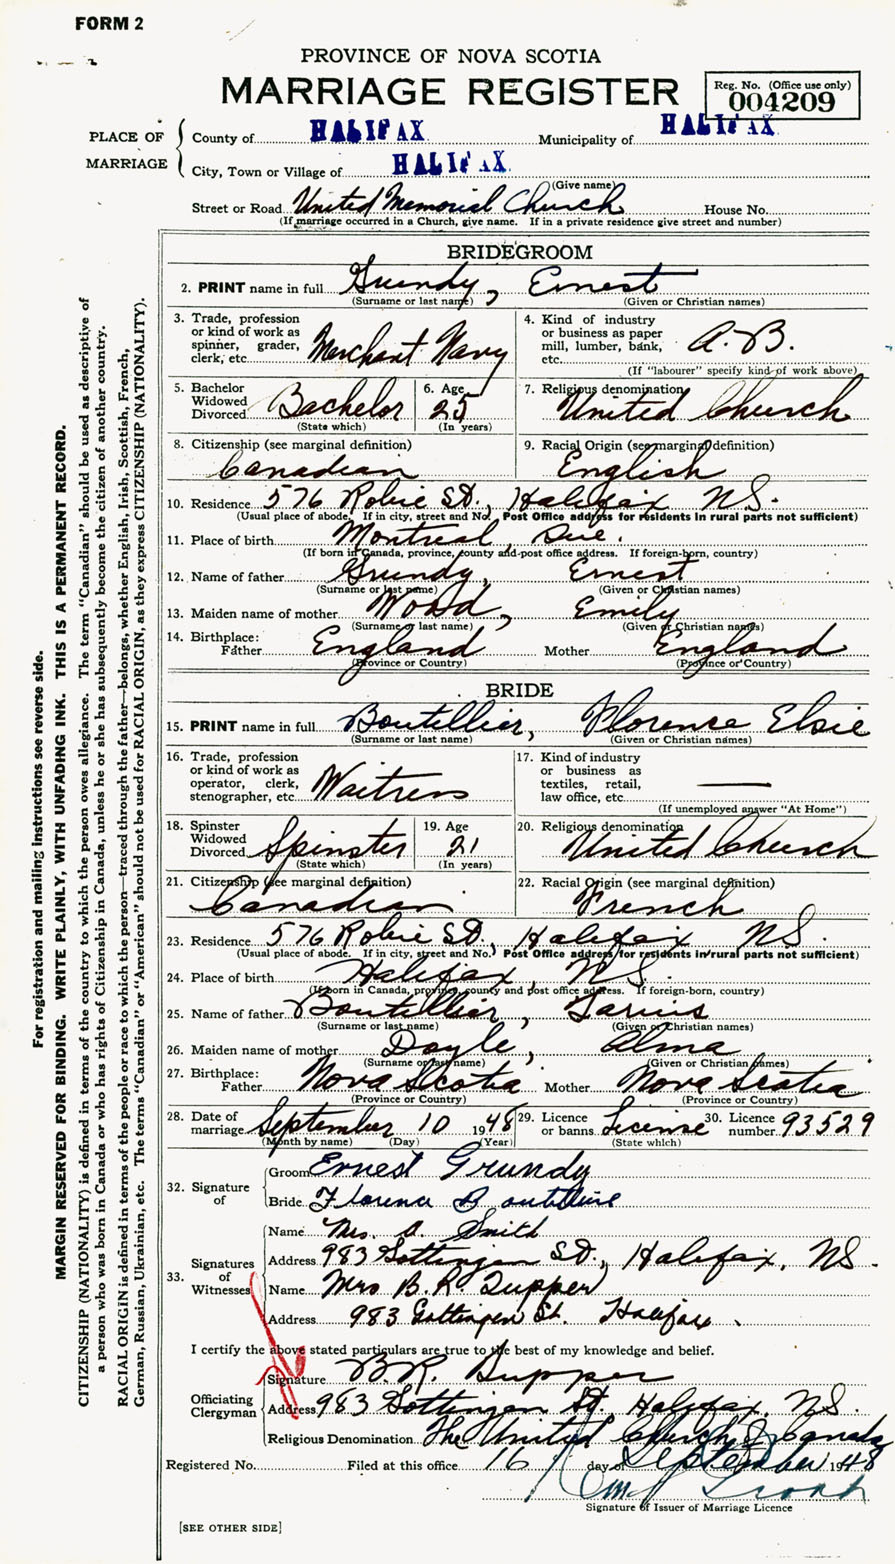 FORM 2
PROVINCE OF NOVA SCOTIA
MARRIAGE REGISTER
Reg. No. (Office use only)
004209
PLACE OF MARRIAGE
County of HALIFAX Municipality of HALIFAX
City, Town or Village of HALIFAX
(Give name)
Street or Road United Memorial Church House No.
(If marriage occurred in a Church, give name. If in a private residence give street and number)
BRIDEGROOM
2. PRINT name in full Grundy, Ernest
(Surname or last name) (Given or Christian names)
3. Trade, profession or kind of work as spinner, grader, clerk, etc. Merchant Navy
4. Kind of industry or business as paper mill, lumber, bank, etc. A.B.
(If "labourer" specify kind of work above)
5. Bachelor Widowed Divorced Bachelor
(State which)
6. Age 25
(In years)
7. Religious denomination United Church
8. Citizenship (see marginal definition) Canadian
9. Racial Origin (see marginal definition) English
10. Residence 576 Robie St., Halifax N.S.
(Usual place of abode. If in city, street and No. Post Office address for residents in rural parts not sufficient)
11. Place of birth Montreal, Que.
(If born in Canada, province, county and post office address. If foreign-born, country)
12. Name of father Grundy, Ernest
(Surname or last name) (Given or Christian names)
13. Maiden name of mother Wood, Emily
(Surname or last name) (Given or Christian names)
14. Birthplace: Father England Mother England
(Province or Country) (Province or Country)
BRIDE
15. PRINT name in full Boutillier, Florence Elsie
(Surname or last name) (Given or Christian names)
16. Trade, profession or kind of work as operator, clerk, stenographer, etc. Waitress
17. Kind of industry or business as textiles, retail, law office, etc. —
(If unemployed answer "At Home")
18. Spinster Widowed Divorced Spinster
(State which)
19. Age 21
(In years)
20. Religious denomination United Church
21. Citizenship (see marginal definition) Canadian
22. Racial Origin (see marginal definition) French
23. Residence 576 Robie St., Halifax N.S.
(Usual place of abode. If in city, street and No. Post Office address for residents in rural parts not sufficient)
24. Place of birth Halifax, N.S.
(If born in Canada, province, county and post office address. If foreign-born, country)
25. Name of father Boutillier,
(Surname or last name) (Given or Christian names)
26. Maiden name of mother Doyle, Alma
(Surname or last name) (Given or Christian names)
27. Birthplace: Father Nova Scotia Mother Nova Scotia
(Province or Country) (Province or Country)
28. Date of marriage September 10 1948
(Month by name) (Day) (Year)
29. Licence or banns License
(State which)
30. Licence number 93529
32. Signature of
Groom Ernest Grundy
Bride Florence Boutillier
33. Signatures of Witnesses
Name Mrs. A. Smith
Address 983 Gottingen St., Halifax, N.S.
Name Mrs B.R. Tupper
Address 983 Gottingen St. Halifax.
I certify the above stated particulars are true to the best of my knowledge and belief.
Officiating Clergyman
Signature B.R. Tupper
Address 983 Gottingen St. Halifax, N.S.
Religious Denomination The United Church of Canada
Registered No. Filed at this office 16 day of September 1948
Signature of Issuer of Marriage Licence
[SEE OTHER SIDE]
For registration and mailing instructions see reverse side.
MARGIN RESERVED FOR BINDING. WRITE PLAINLY, WITH UNFADING INK. THIS IS A PERMANENT RECORD.
CITIZENSHIP (NATIONALITY) is defined in terms of the country to which the person owes allegiance. The term "Canadian" should be used as descriptive of
a person who was born in Canada or who has rights of Citizenship in Canada, unless he or she has subsequently become the citizen of another country.
RACIAL ORIGIN is defined in terms of the people or race to which the person—traced through the father—belongs, whether English, Irish, Scottish, French,
German, Russian, Ukrainian, etc. The terms "Canadian" or "American" should not be used for RACIAL ORIGIN, as they express CITIZENSHIP (NATIONALITY).